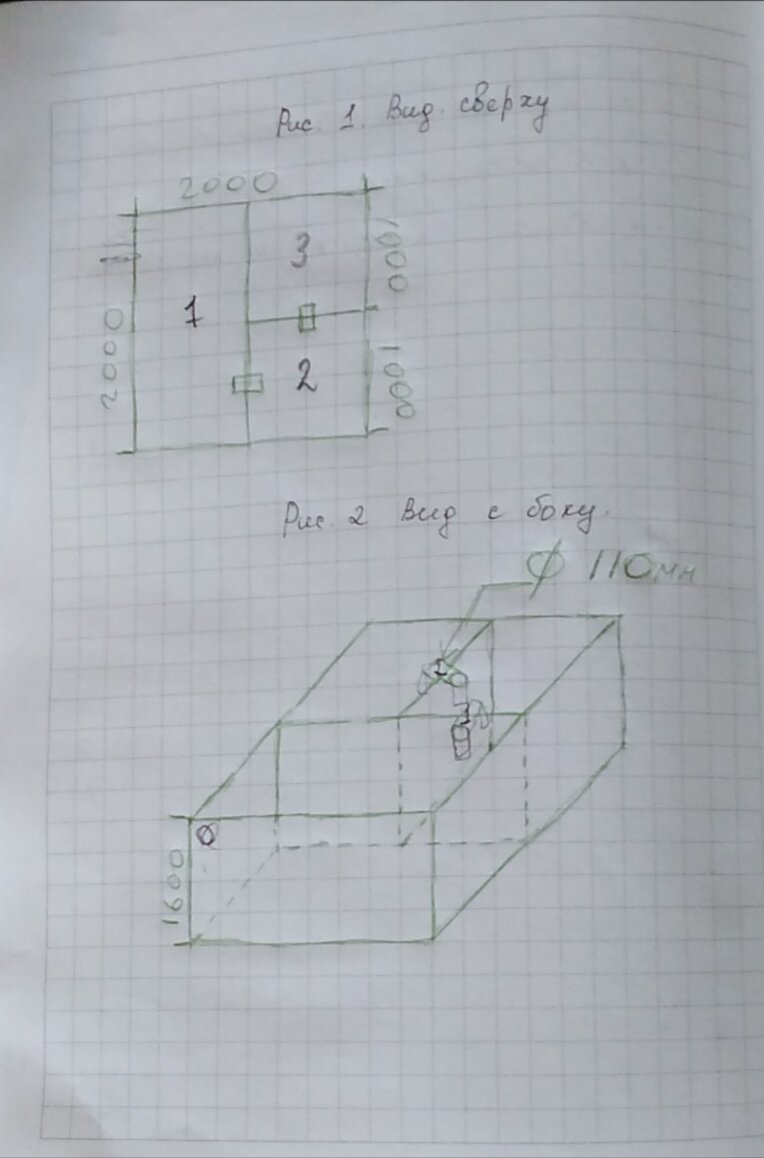 Рис. 1. Вид сверху
2000
3
1000
1
2000
2
1000
Рис. 2 Вид с боку.
Ф 110мм
1600